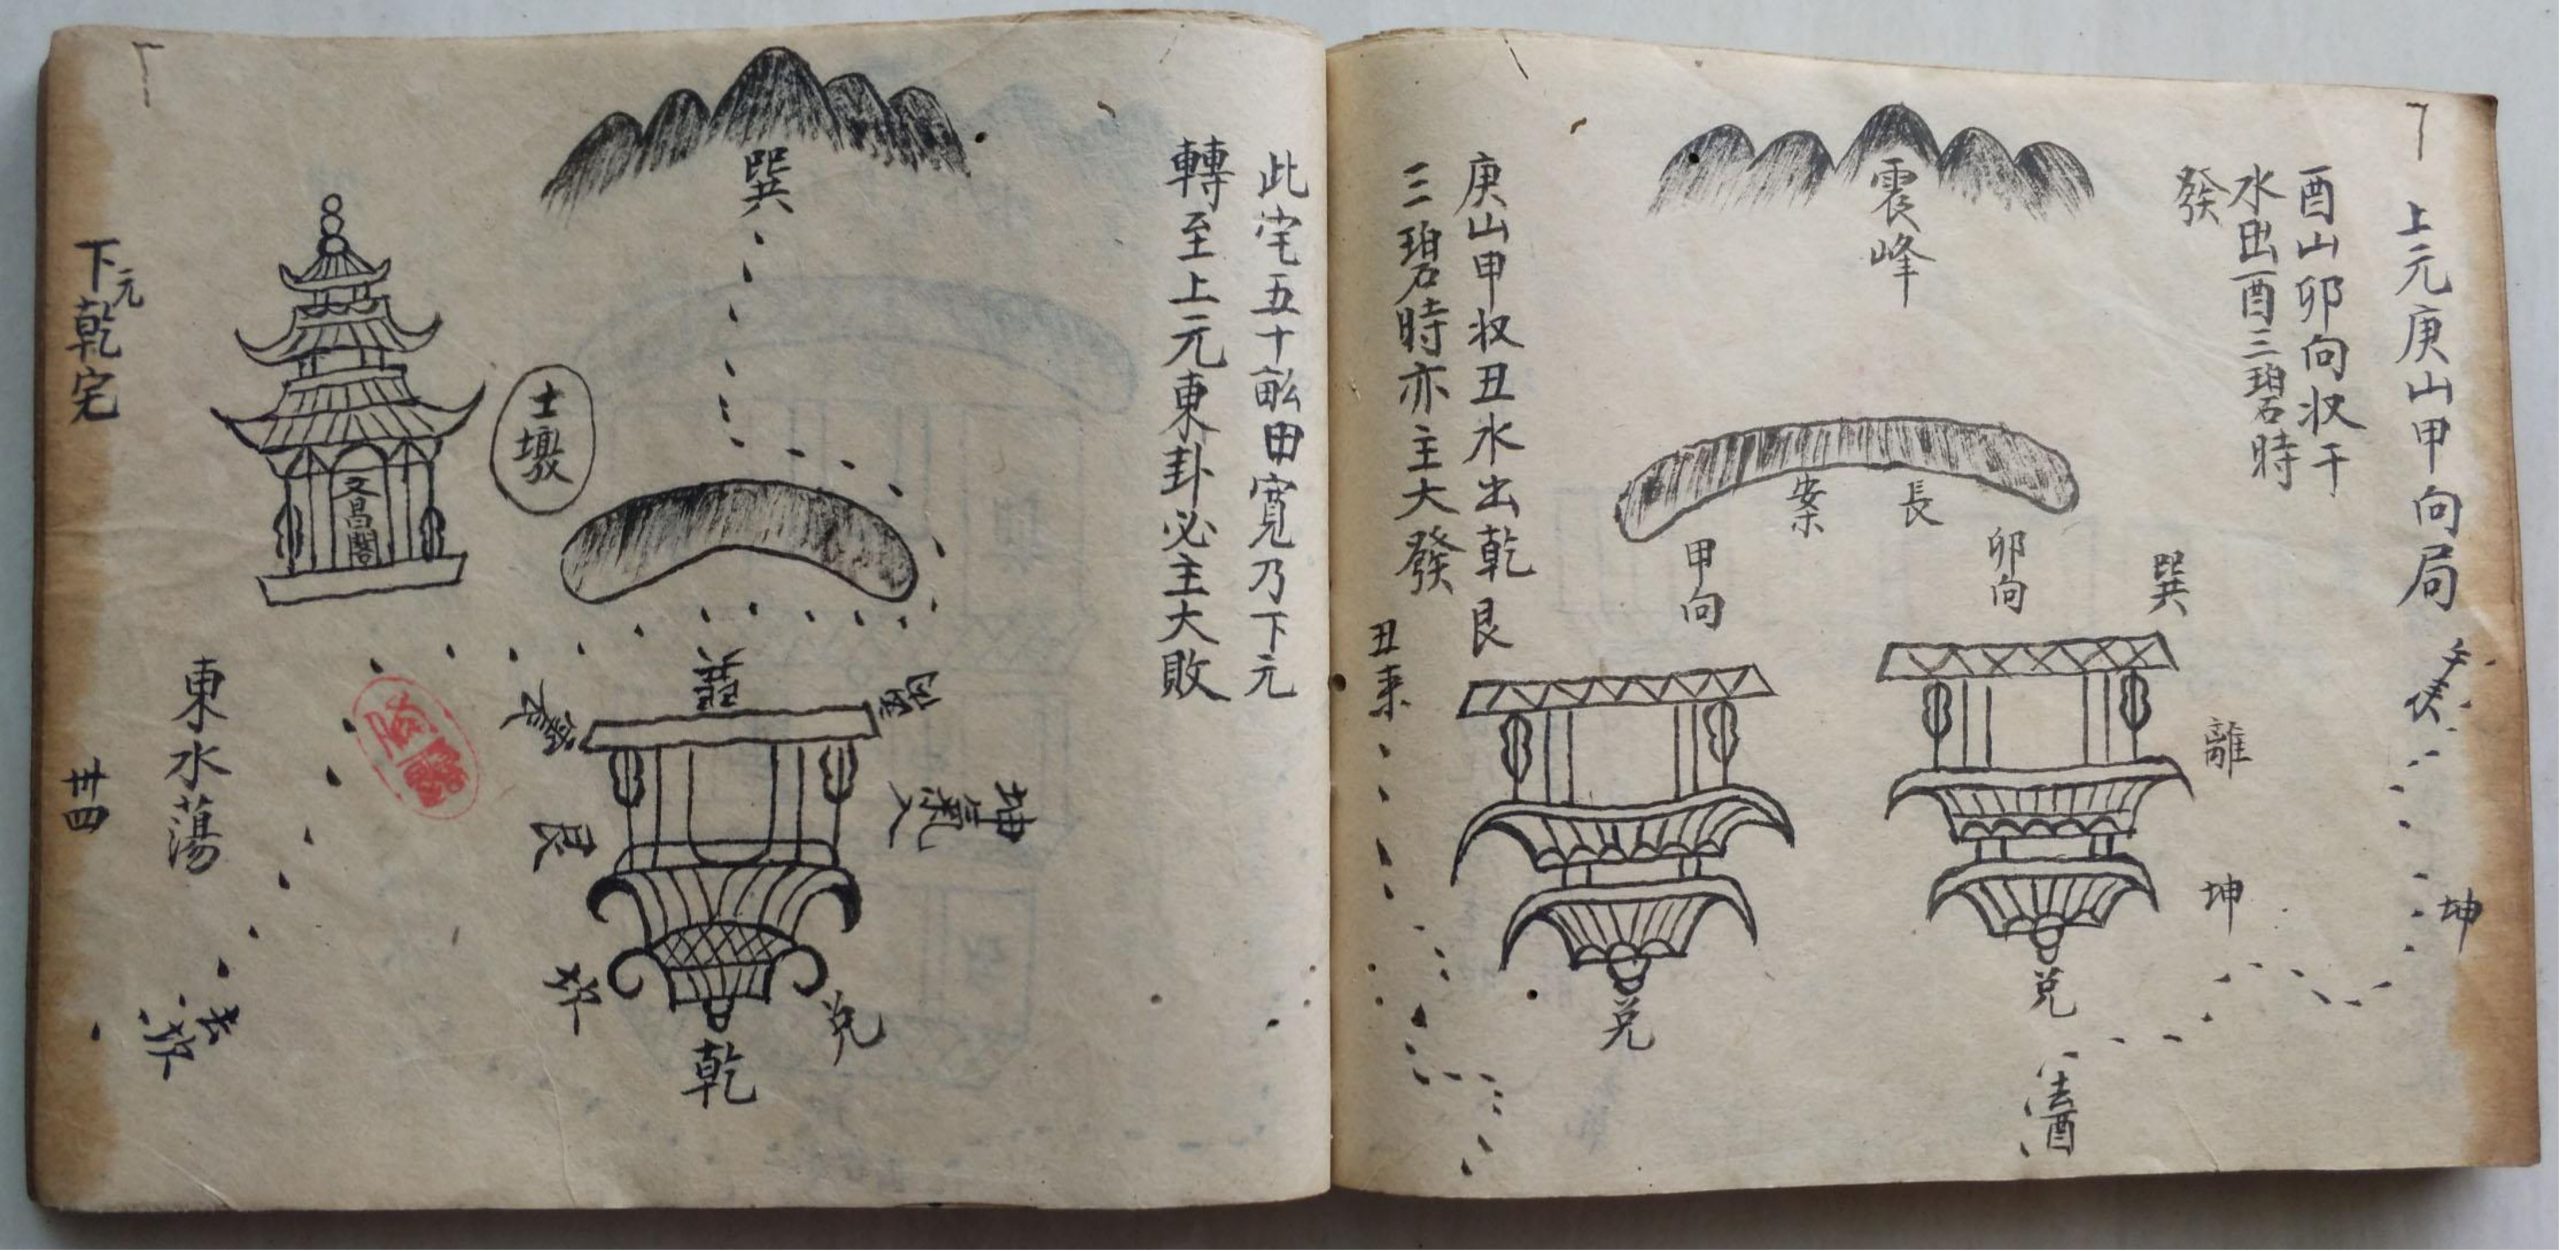 上元庚山甲向局
酉山卯向收干
水出酉三碧時
發
震峰
長
案
卯向
甲向
巽
離
坤
坤
兌
兌
去酉
庚山甲收丑水出乾
艮
三碧時亦主大發
丑來
此宅五十畝田寬乃下元
轉至上元東卦必主大敗
巽
土墩
文昌閣
下元乾宅
卅四
東水蕩
巽
離
震
坤氣入
艮
坎
兌
乾
去坎